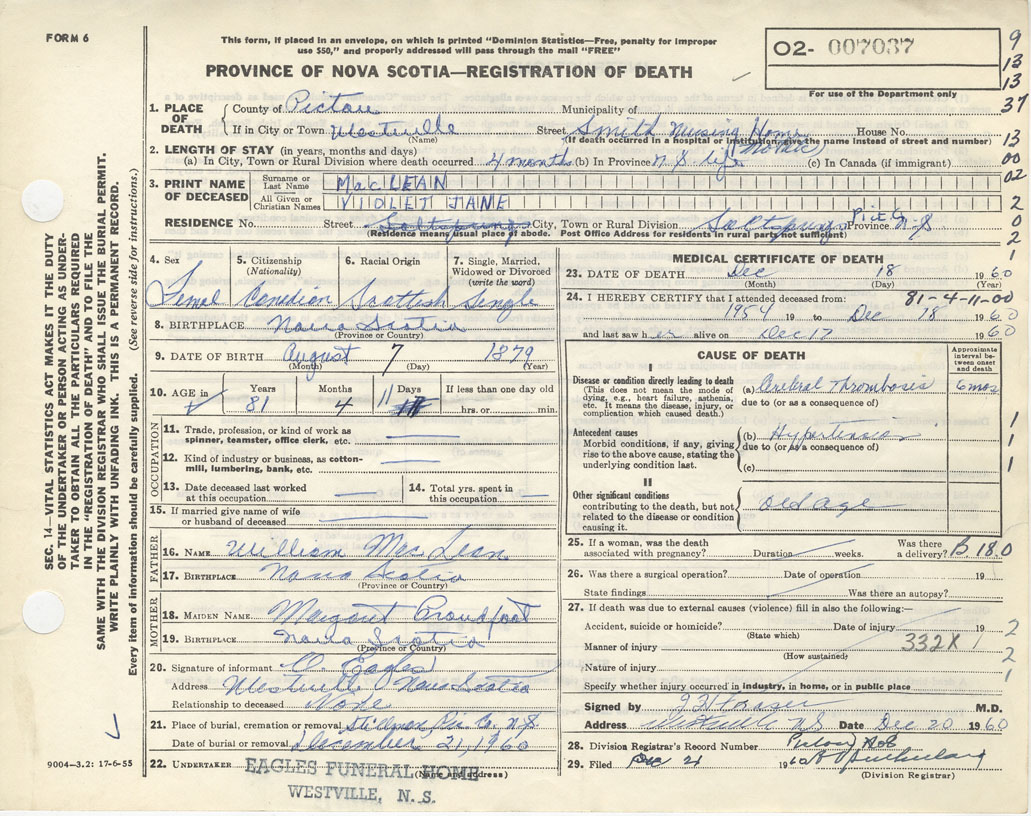 FORM 6
This form, if placed in an envelope, on which is printed "Dominion Statistics—Free, penalty for improper
use $50," and properly addressed will pass through the mail "FREE"
PROVINCE OF NOVA SCOTIA—REGISTRATION OF DEATH
O2- 007037
For use of the Department only
9
13
13
37
1. PLACE OF DEATH
County of Pictou Municipality of
If in City or Town Westville Street Smith Nursing Home House No.
(Name) (If death occurred in a hospital or institution, give the name instead of street and number)
13
2. LENGTH OF STAY (in years, months and days)
(a) In City, Town or Rural Division where death occurred 4 months (b) In Province N S life (c) In Canada (if immigrant)
00
02
3. PRINT NAME OF DECEASED
Surname or Last Name MacLEAN
All Given or Christian Names VIOLET JANE
2
RESIDENCE No. Street Saltsprings City, Town or Rural Division Saltsprings Pict Co Province N-S
(Residence means usual place of abode. Post Office Address for residents in rural party not sufficient)
0
2
4. Sex 5. Citizenship (Nationality) 6. Racial Origin 7. Single, Married, Widowed or Divorced (write the word)
Femal Canadian Scottish Single
8. BIRTHPLACE Nova Scotia
(Province or Country)
9. DATE OF BIRTH August 7 1879
(Month) (Day) (Year)
10. AGE in Years Months Days If less than one day old
81 4 11 hrs. or min.
OCCUPATION
11. Trade, profession, or kind of work as spinner, teamster, office clerk, etc.
12. Kind of industry or business, as cotton-mill, lumbering, bank, etc.
13. Date deceased last worked at this occupation 14. Total yrs. spent in this occupation
15. If married give name of wife or husband of deceased
FATHER
16. NAME William MacLean
17. BIRTHPLACE Nova Scotia
(Province or Country)
MOTHER
18. MAIDEN NAME Margaret Proudfoot
19. BIRTHPLACE Nova Scotia
(Province or Country)
20. Signature of informant O. Eagles
Address Westville Nova Scotia
Relationship to deceased None
21. Place of burial, cremation or removal Pic. Co. N.S.
Date of burial or removal December 21, 1960
22. UNDERTAKER EAGLES FUNERAL HOME
(Name and address)
WESTVILLE, N. S.
MEDICAL CERTIFICATE OF DEATH
1
23. DATE OF DEATH Dec 18 1960
(Month) (Day) (Year)
24. I HEREBY CERTIFY that I attended deceased from: 81-4-11-00
1954 19 to Dec 18 1960
and last saw her alive on Dec 17 1960
CAUSE OF DEATH
Approximate interval between onset and death
I
Disease or condition directly leading to death
(This does not mean the mode of dying, e.g., heart failure, asthenia, etc. It means the disease, injury, or complication which caused death.)
(a) Cerebral Thromboses 6 mos
due to (or as a consequence of)
Antecedent causes
Morbid conditions, if any, giving rise to the above cause, stating the underlying condition last.
(b) Hypertension
due to (or as a consequence of)
(c)
1
1
1
II
Other significant conditions
contributing to the death, but not related to the disease or condition causing it.
Old age
25. If a woman, was the death associated with pregnancy? Duration weeks. Was there a delivery? B.18.0
26. Was there a surgical operation? Date of operation 19
State findings Was there an autopsy?
27. If death was due to external causes (violence) fill in also the following:—
Accident, suicide or homicide? Date of injury 19
(State which)
Manner of injury 332X 1
(How sustained)
Nature of injury
Specify whether injury occurred in industry, in home, or in public place
2
2
1
Signed by M.D.
Address Westville N.S Date Dec 20 1960
28. Division Registrar's Record Number
29. Filed Dec 21 1960
(Division Registrar)
SEC. 14—VITAL STATISTICS ACT MAKES IT THE DUTY
OF THE UNDERTAKER OR PERSON ACTING AS UNDER-
TAKER TO OBTAIN ALL THE PARTICULARS REQUIRED
IN THE "REGISTRATION OF DEATH" AND TO FILE THE
SAME WITH THE DIVISION REGISTRAR WHO SHALL ISSUE THE BURIAL PERMIT.
WRITE PLAINLY WITH UNFADING INK. THIS IS A PERMANENT RECORD.
Every item of information should be carefully supplied. (See reverse side for instructions.)
9004—3.2: 17-6-55